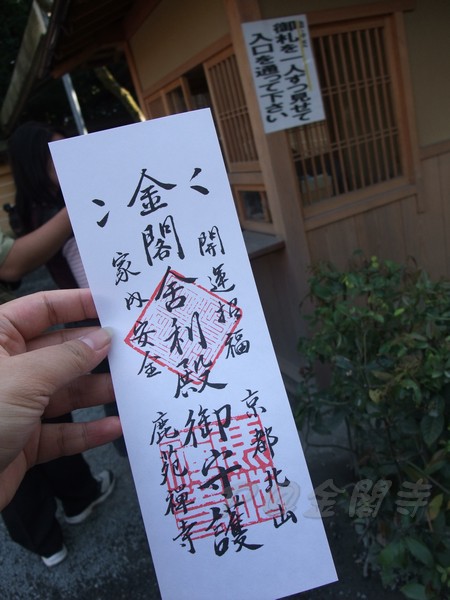 御札を一人ずつ見せて
入口を通って下さい
開運招福
京都北山
金閣舎利殿御守護
家内安全
鹿苑禅寺
金閣寺